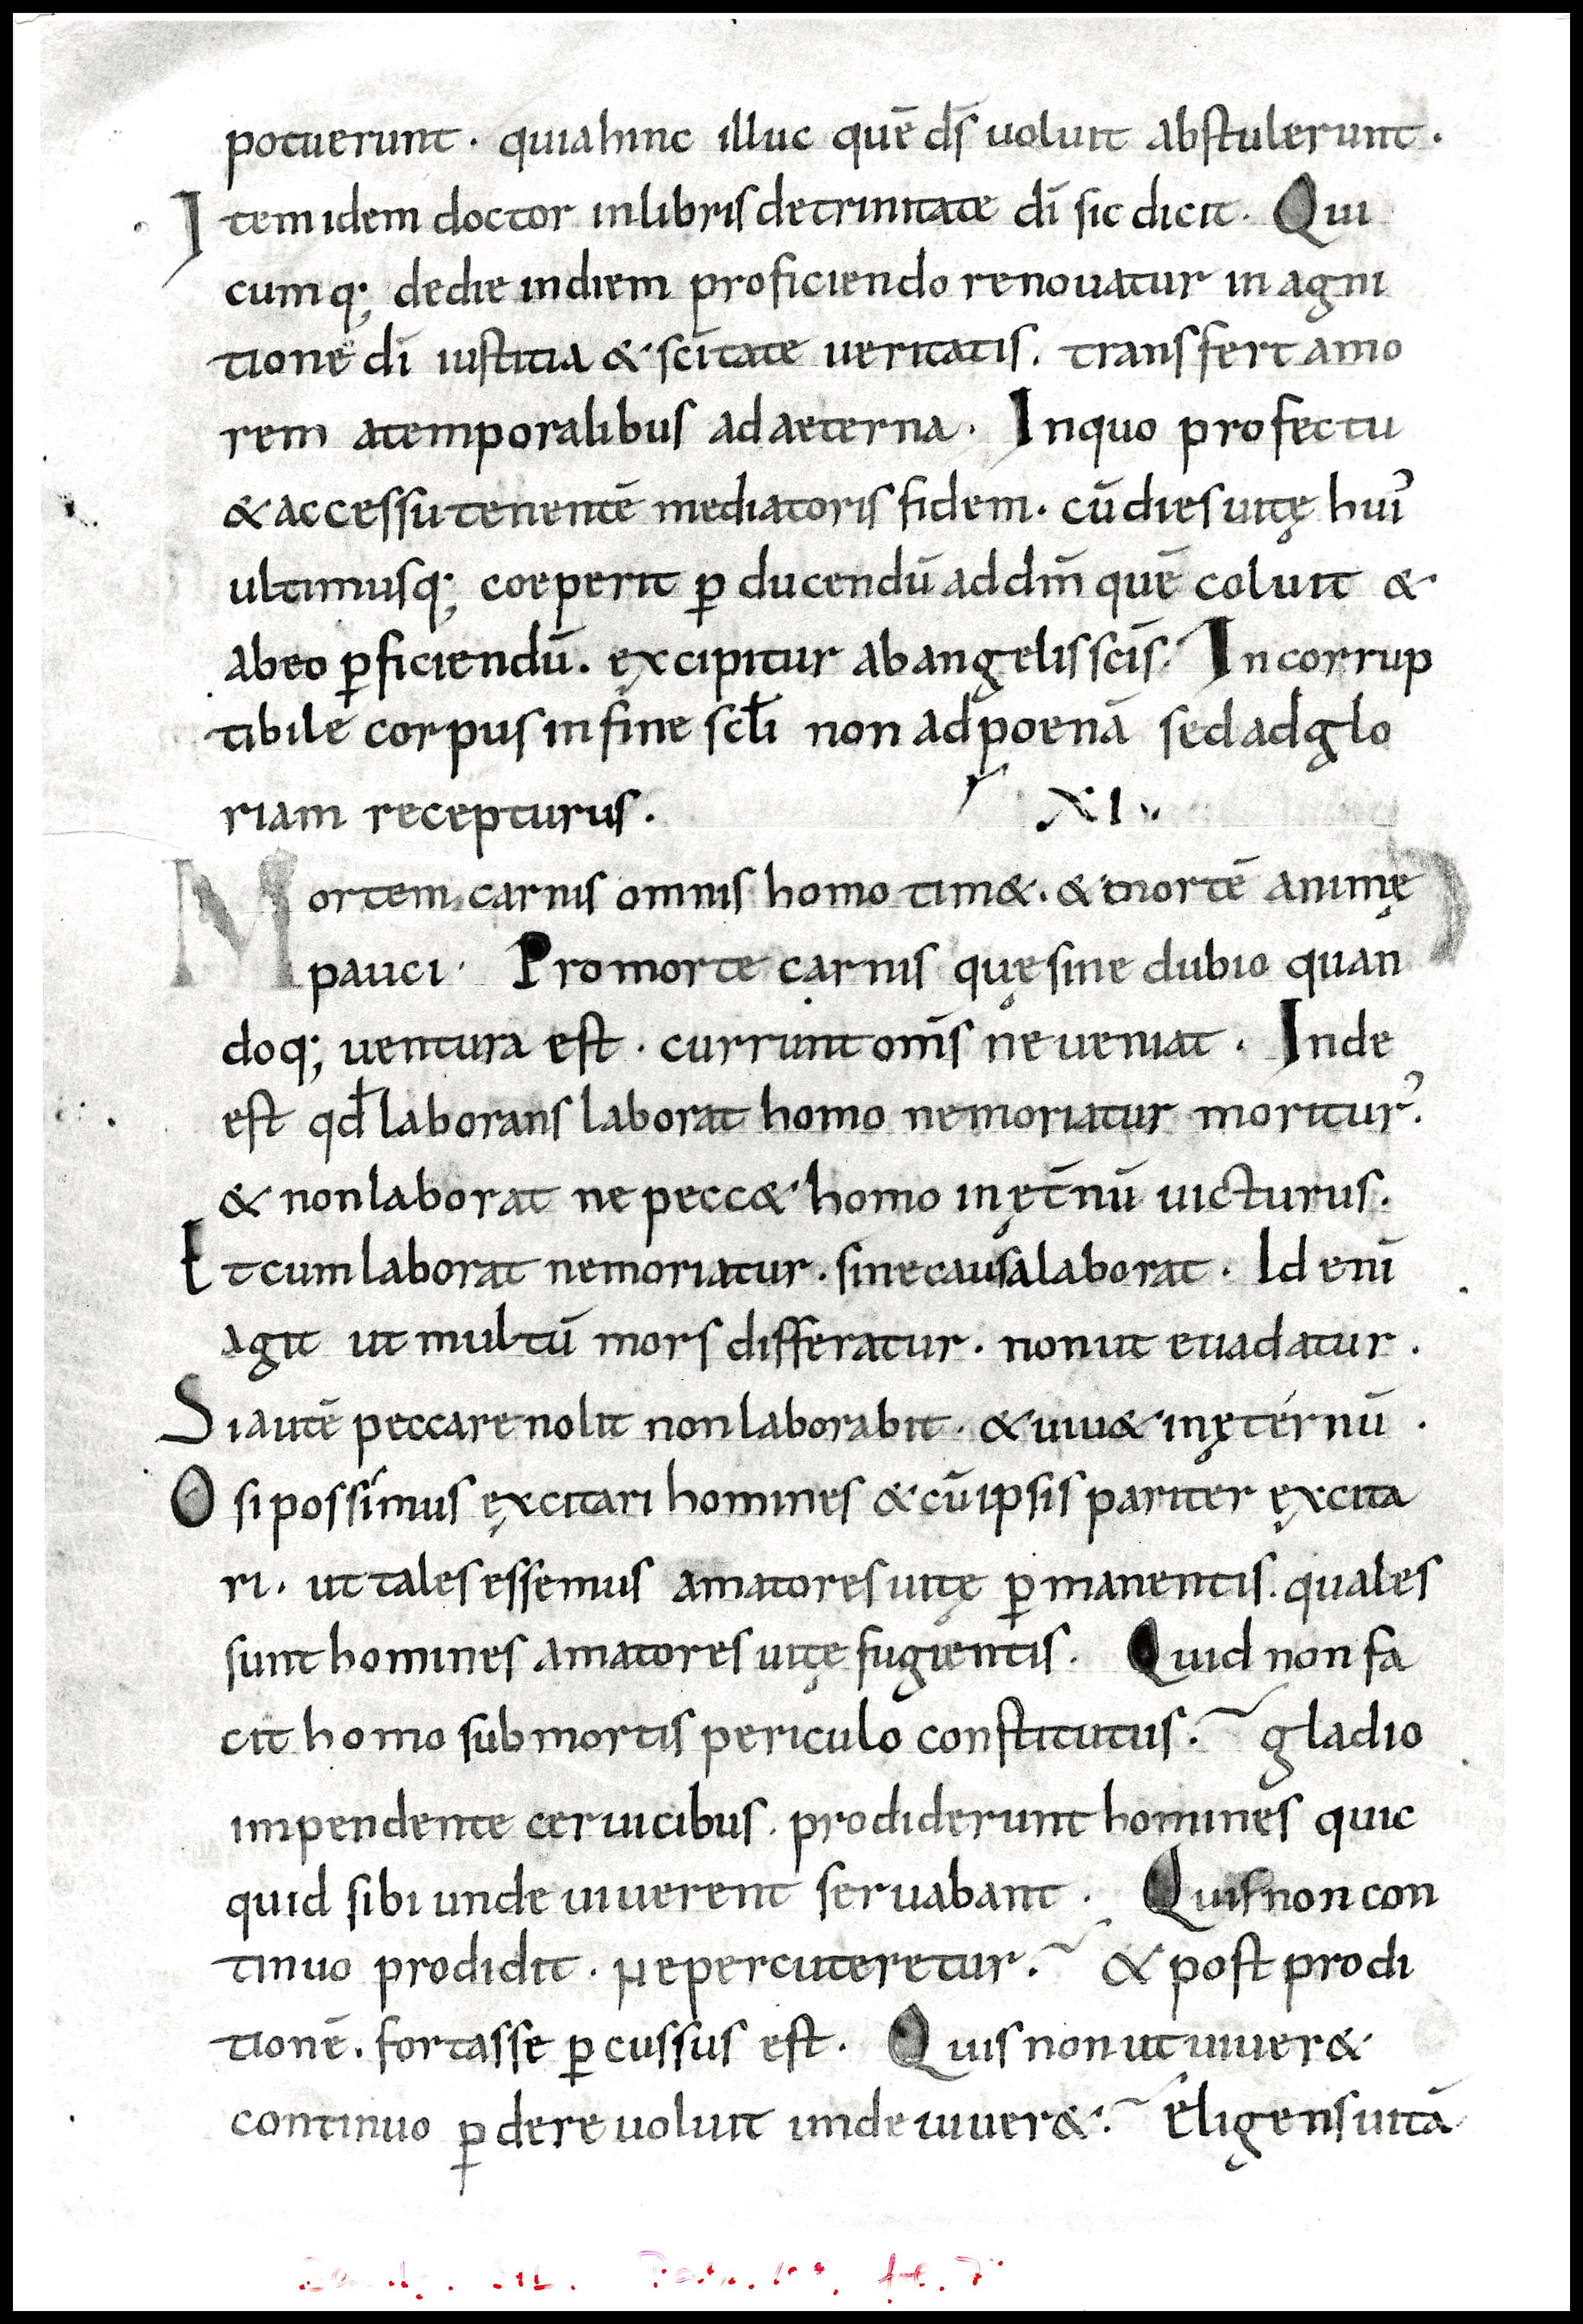 potuerunt · quiahinc illuc quē ds̄ uoluit abstulerunt ·
Item idem doctor inlibris detrinitate dī sic dicit · Qui
cumq; dedie indiem proficiendo renouatur in agni
tione dī iustitia & scītate ueritatis . transfert amo
rem atemporalibus ad aeterna · Inquo profectu
& accessu tenentē mediatoris fidem · cū dies uitę hui᾿
ultimusq; coeperit ꝑducendū ad dm̄ quē coluit &
abeo ꝑficiendū . excipitur ab angelis scīs . Incorrup
tibile corpus infine scłi non adpoenā sed adglo
riam recepturus . XI .
Mortem carnis omnis homo tim& . & mortē animę
pauci · Promorte carnis quę sine dubio quan
doq; uentura est · currunt om̄s ne ueniat · Inde
est qđ laborans laborat homo nemoriatur moriturʾ .
& nonlaborat ne pecc& homo inęt̄nū uicturus .
Et cum laborat nemoriatur . sinecausa laborat · Id enī
agit ut multū mors differatur . nonut euadatur .
Si autē peccare nolit nonlaborabit · & uiu& inęternū .
O si possimus ęxcitari homines & cū ipsis pariter ęxcita
ri . ut tales essemus amatores uitę ꝑmanentis . quales
sunt homines amatores uitę fugientis . Quid non fa
cit homo submortis periculo constitutus .~ gladio
impendente ceruicibus . prodiderunt homines quic
quid sibi unde uiuerent seruabant . Quis non con
tinuo prodidit . ne percuteretur .~ & post prodi
tionē . fortasse ꝑcussus est . Quis non ut uiuer&
continuo ꝑdere uoluit unde uiuer& .~ Eligens uitā